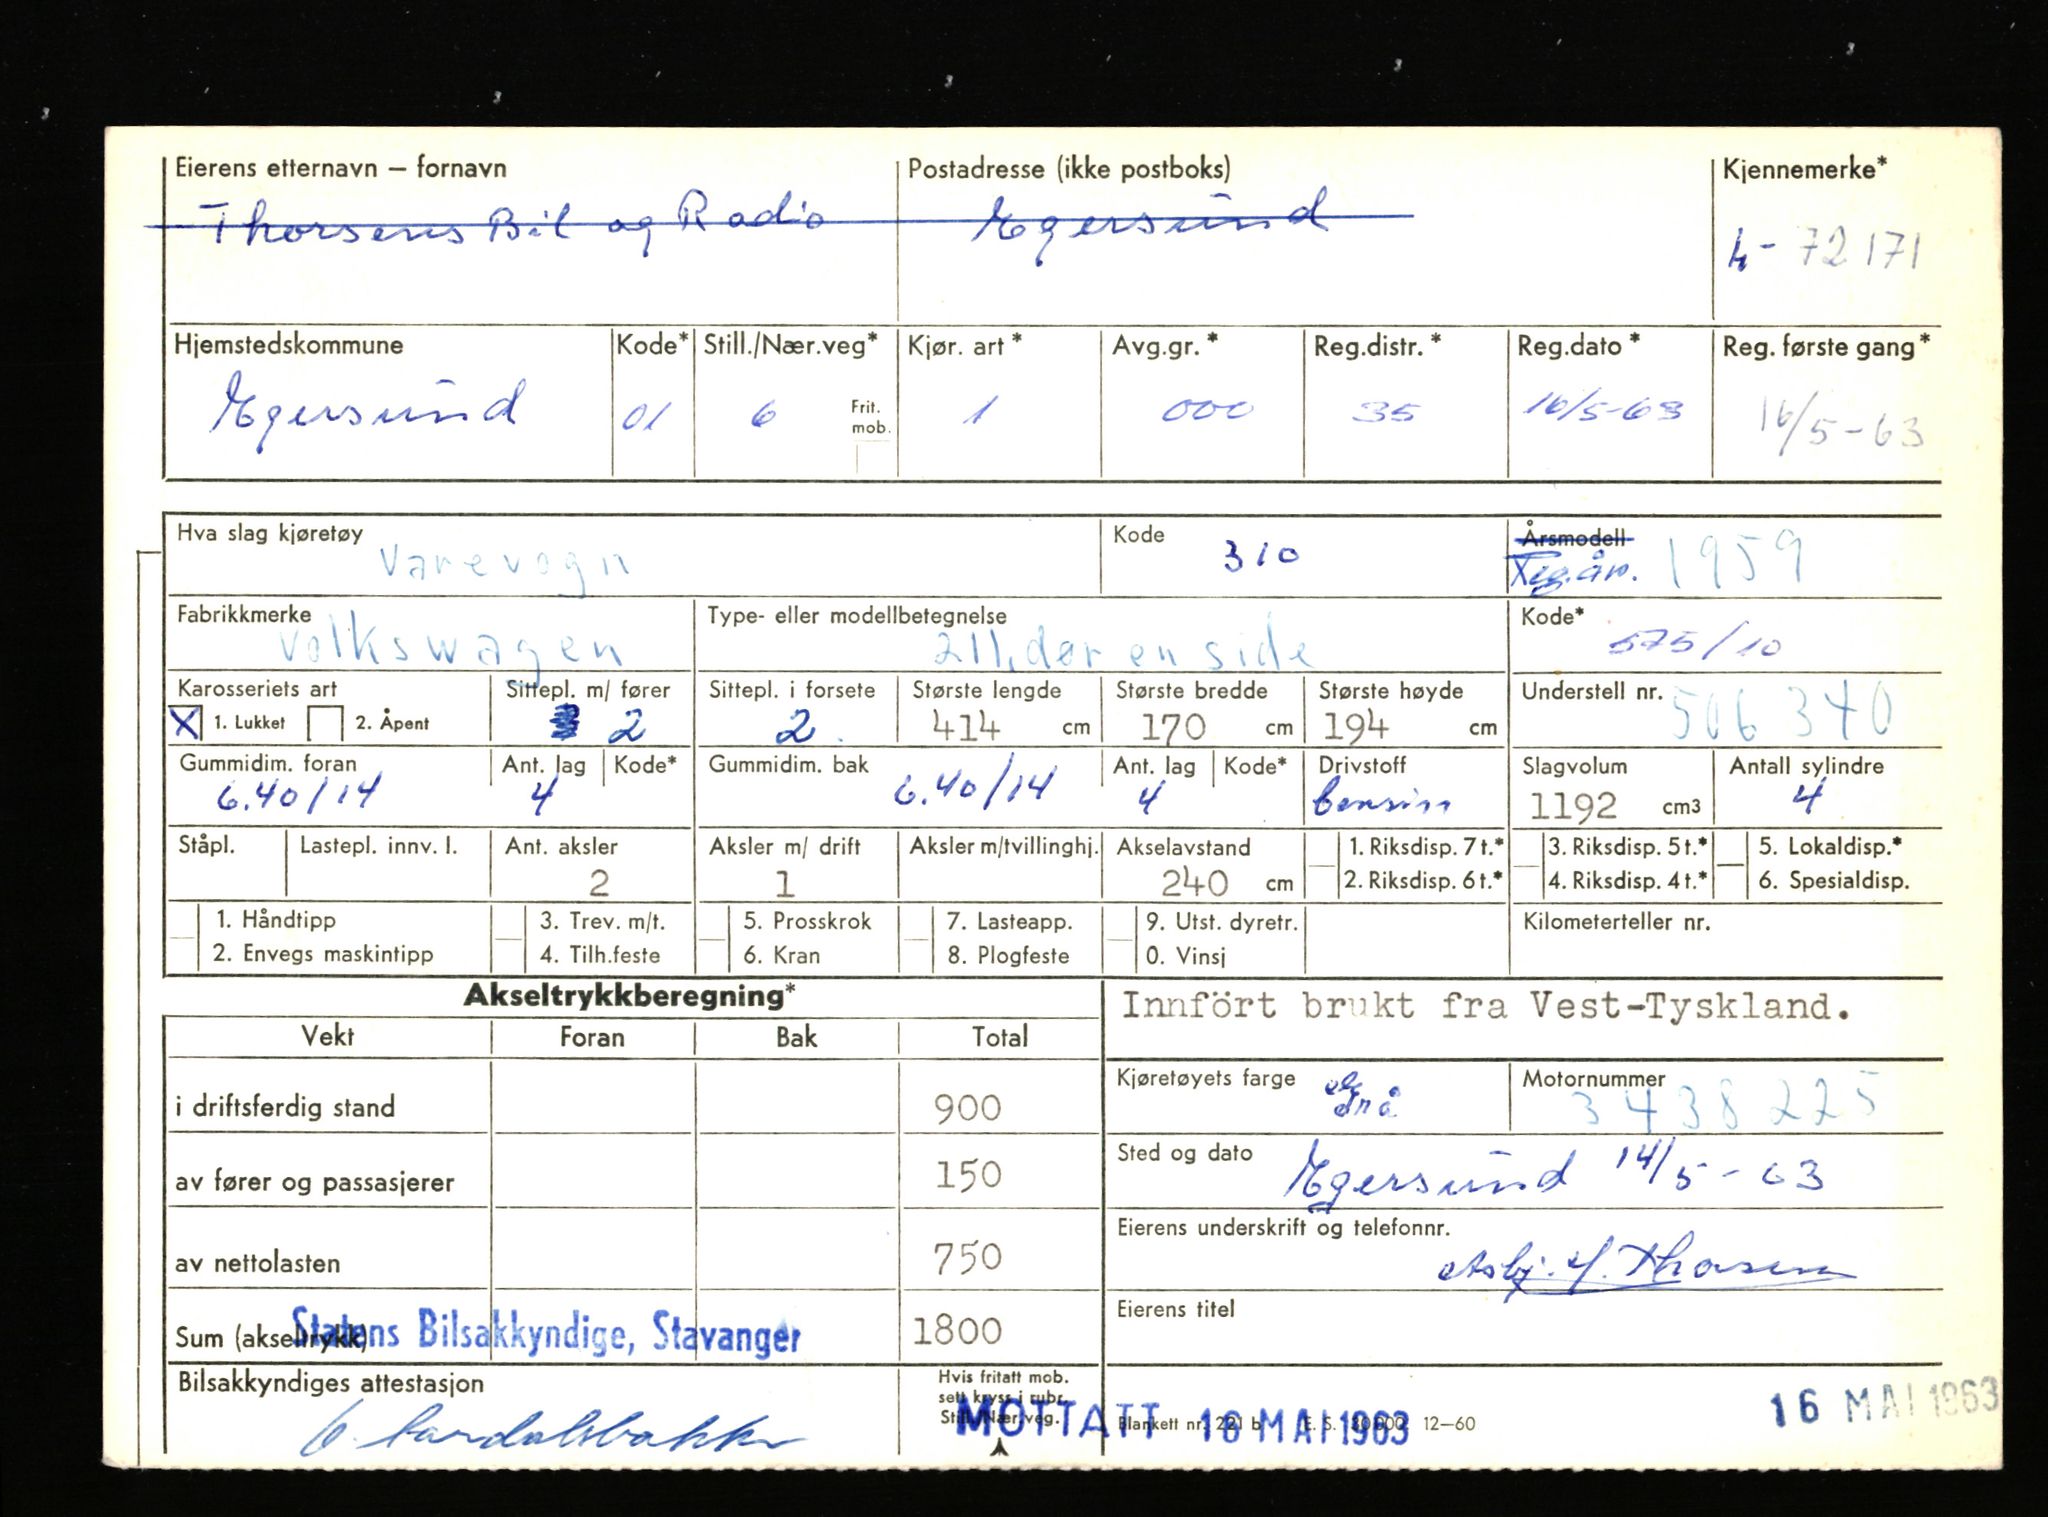 Eierens etternavn – fornavn Postadresse (ikke postboks) Kjennemerke*
Thorsens Bil og Radio Egersund
72171
Hjemstedskommune Kode* Still./Nær.veg* Kjør. art* Avg.gr.* Reg.distr.* Reg.dato* Reg. første gang*
Egersund 01 6 Frit. mob. 1 000 35 16/5-63 16/5-63
Hva slag kjøretøy Kode Årsmodell
Varevogn 310 Reg.år. 1959
Fabrikkmerke Type- eller modellbetegnelse Kode*
Volkswagen 211, dør en side 575/10
Karosseriets art Sittepl. m/ fører Sittepl. i forsete Største lengde Største bredde Største høyde Understell nr.
X 1. Lukket 2. Åpent 2 2. 414 cm 170 cm 194 cm 506340
Gummidim. foran Ant. lag Kode* Gummidim. bak Ant. lag Kode* Drivstoff Slagvolum Antall sylindre
6.40/14 4 6.40/14 4 bensin 1192 cm3 4
Ståpl. Lastepl. innv. l. Ant. aksler Aksler m/ drift Aksler m/tvillinghj. Akselavstand 1. Riksdisp. 7 t.* 3. Riksdisp. 5 t.* 5. Lokaldisp.*
2 1 240 cm 2. Riksdisp. 6 t.* 4. Riksdisp. 4 t.* 6. Spesialdisp.
1. Håndtipp 3. Trev. m/t. 5. Prosskrok 7. Lasteapp. 9. Utst. dyretr. Kilometerteller nr.
2. Envegs maskintipp 4. Tilh.feste 6. Kran 8. Plogfeste 0. Vinsj
Akseltrykkberegning* Innfört brukt fra Vest-Tyskland.
Vekt Foran Bak Total
Kjøretøyets farge grå Motornummer
i driftsferdig stand 900 3438225
Sted og dato
av fører og passasjerer 150 Egersund 14/5-63
Eierens underskrift og telefonnr.
av nettolasten 750 Thorsen
Eierens titel
Sum (akseltrykk) 1800
Statens Bilsakkyndige, Stavanger
Bilsakkyndiges attestasjon Hvis fritatt mob.
sett kryss i rubr.
Still./Nær.veg.
MOTTATT 16 MAI 1963
Blankett nr. 221 b E. S. 30.000 12–60
16 MAI 1963